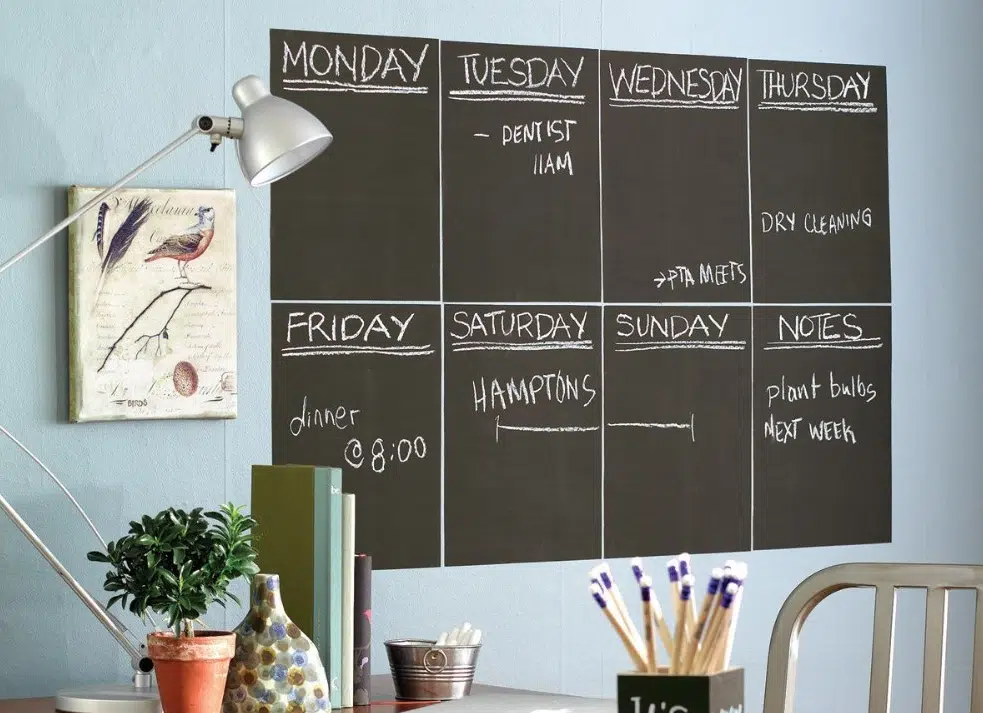 MONDAY
TUESDAY
- DENTIST
11AM
WEDNESDAY
→PTA MEETS
THURSDAY
DRY CLEANING
FRIDAY
dinner
@8:00
SATURDAY
HAMPTONS
SUNDAY
NOTES
plant bulbs
NEXT WEEK
BIRDS
It's